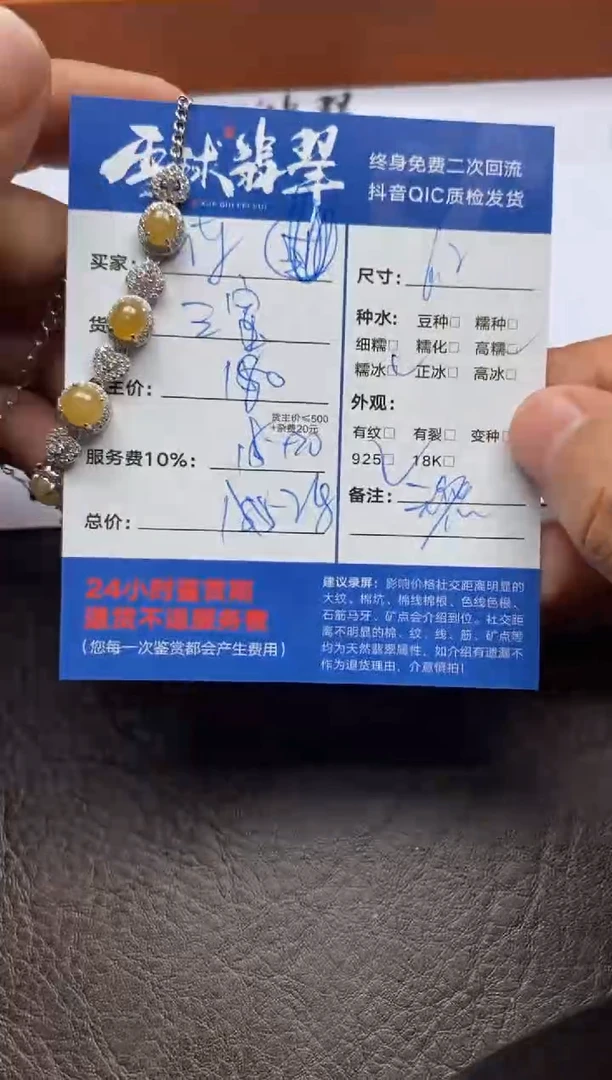 雪球翡翠
XUE QIU FEI CUI
终身免费二次回流
抖音QIC质检发货
买家:
货
主价: 180
货主价≤500
+杂费20元
服务费10%: 18+20
总价:
尺寸:
种水: 豆种□ 糯种□
细糯□ 糯化□ 高糯□
糯冰□ 正冰□ 高冰□
外观:
有纹□ 有裂□ 变种□
925□ 18K□
备注:
24小时鉴赏期
退货不退服务费
(您每一次鉴赏都会产生费用)
建议录屏: 影响价格社交距离明显的
大纹、棉坑、棉线棉根、色线色根、
石筋马牙、矿点会介绍到位。社交距
离不明显的棉、纹、线、筋、矿点等
均为天然翡翠属性，如介绍有遗漏不
作为退货理由，介意慎拍!